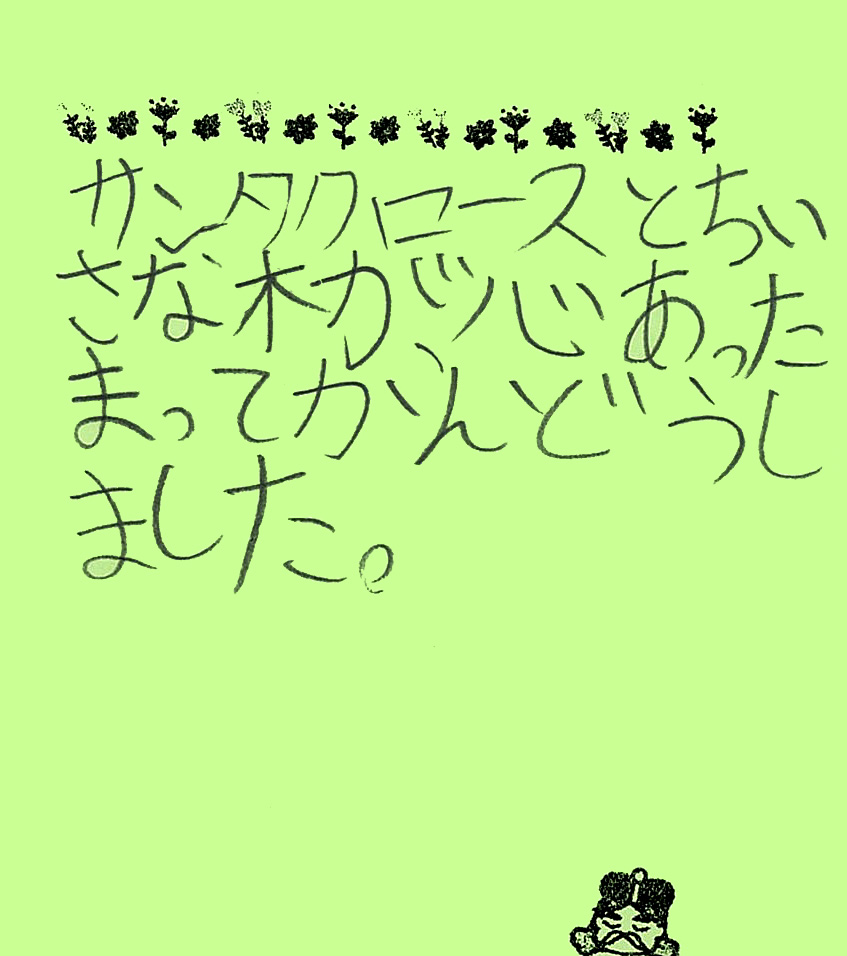 サンタクロースとちい
さな木が心あった
まってかんどうし
ました。